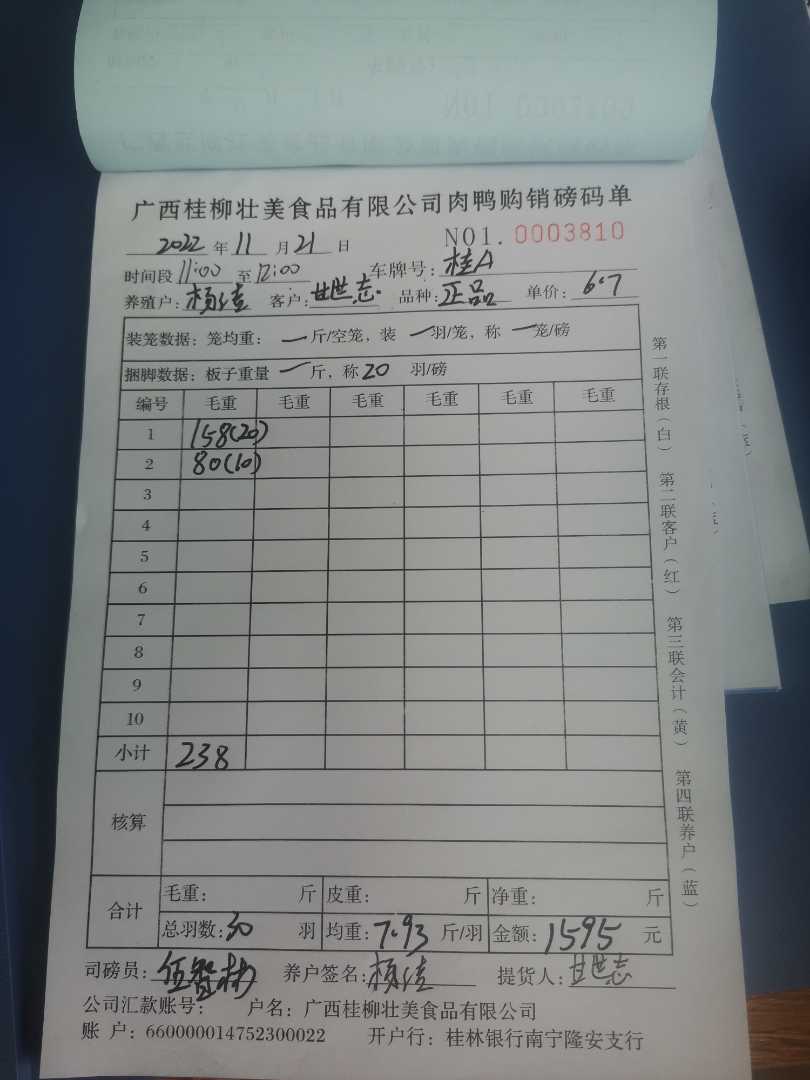 广西桂柳壮美食品有限公司肉鸭购销磅码单
2022年11月21日 NO1.0003810
时间段11:00至12:00 车牌号：桂A
养殖户：杨佳 客户：甘世志 品种：正品 单价：6.7
装笼数据：笼均重：一斤/空笼，装一羽/笼，称一笼/磅
捆脚数据：板子重量一斤，称20羽/磅
编号 毛重 毛重 毛重 毛重 毛重 毛重
1 158(20)
2 80(10)
3
4
5
6
7
8
9
10
小计 238
核算
合计 毛重： 斤 皮重： 斤 净重： 斤
总羽数：30羽 均重：7.93斤/羽 金额：1595元
司磅员：伍智彬 养户签名：杨佳 提货人：甘世志
公司汇款账号： 户名：广西桂柳壮美食品有限公司
账 户：660000014752300022 开户行：桂林银行南宁隆安支行
第一联存根（白） 第二联客户（红） 第三联会计（黄） 第四联养户（蓝）